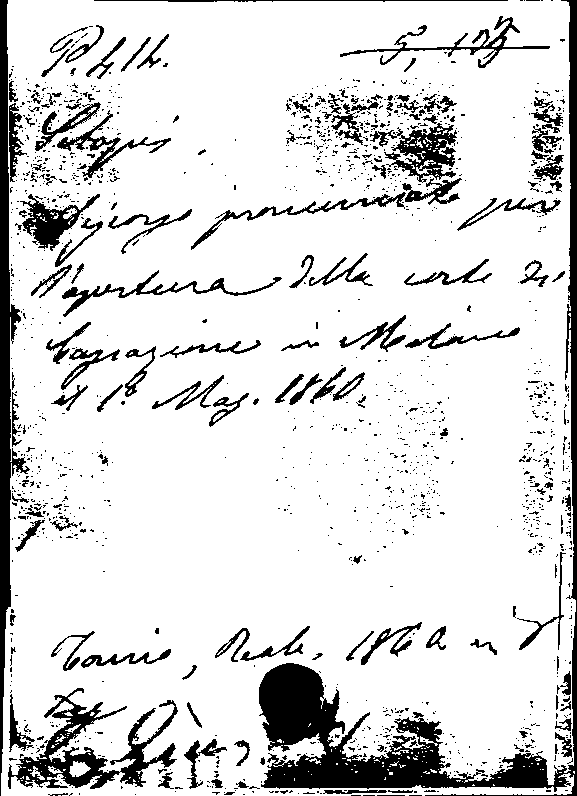 P. 414. 5, 133
Discorso pronunciato per
l'apertura della corte di
Cassazione in Milano
il 1º Mag. 1860.
Torino, Reale, 1860 in